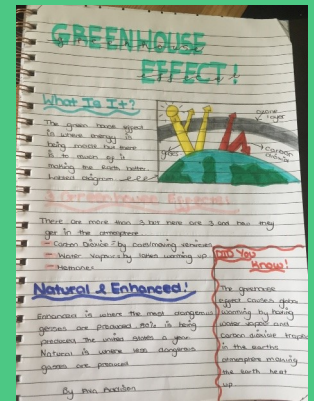 GREENHOUSE
EFFECT!
What Is It?
The green house effect
is where energy is
being made but there
is to much of it
making the earth hotter
diagram
ozone
layer
gas
carbon
dioxide
3 Greenhouse Effects!
There are more than 3 but here are 3 and how they
get in the atmosphere.
- Carbon Dioxide - by cars/moving vehicles
- Water Vapour - by lakes warming up
Natural & Enhanced!
Enhanced is where the most dangerous
gasses are produced. 90% is being
produced. The united states a year.
Natural is where less dangerous
gasses are produced
By
Did You
Know!
The greenhouse
effect causes global
warming by having
water vapour and
carbon dioxide trapped
in the earths
atmosphere making
the earth heat
up.